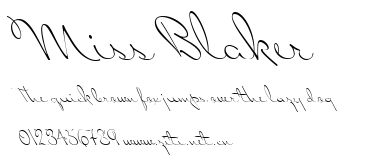 Miss Blaker
The quick brown fox jumps over the lazy dog
0123456789 www.zite.net.cn